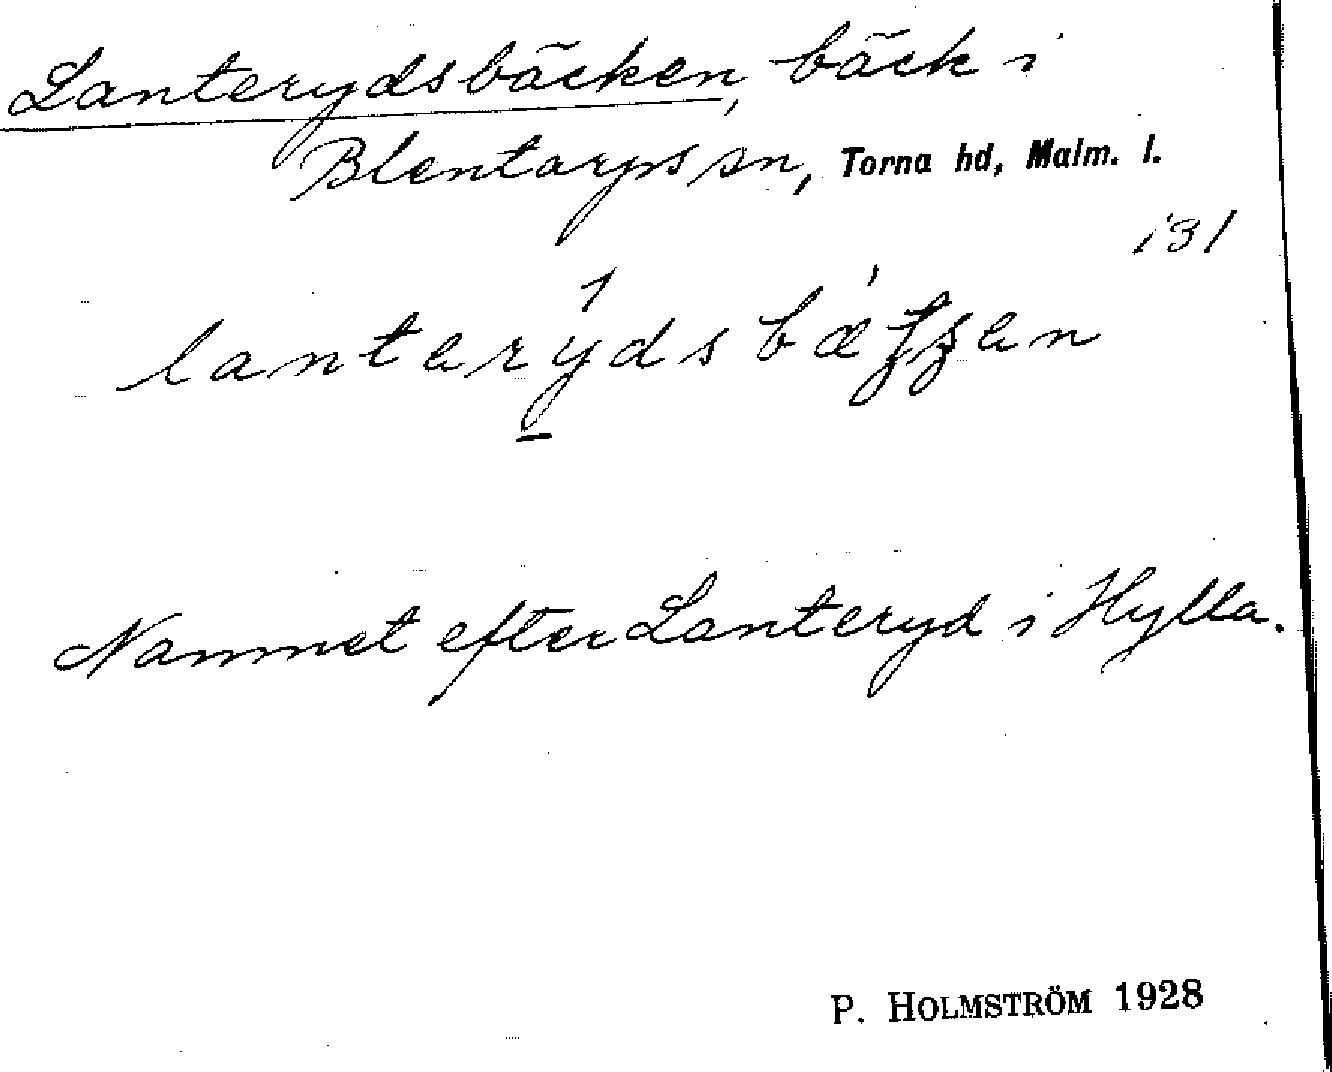 Lanterydsbäcken, bäck i
Blentarps sn, Torna hd, Malm. l.
131
lanterydsbæ
Namnet efter Lanteryd i Hylla.
P. HOLMSTRÖM 1928